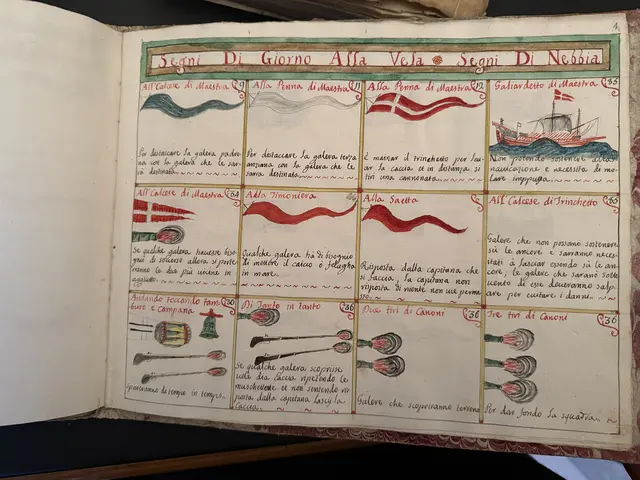 4
Segni Di Giorno Alla Vela Segni Di Nebbia
All Calcese di Maestra 9
Per destaccare la galera padro-
na con la galera che le sarà
destinata
Alla Penna di Maestra 11
Per destaccare la galera terza
anziana con la galera che le
saria destinata
Alla Penna di Maestra 12
È massar il trinchetto per
la caccia et in distanza si
tiri una cannonata
Galiardetto di Maestra 33
Non potendo sostenere
navicazione e necessita di
lare imppussa
All Calcese di Maestra 34
Se qualche galera havesse biso-
gno di soccorso allora si porte-
le da più vicine in
Alla Timoniera
Qualche galera ha di bisogno
di mettere il caicco o felugha
in mare
Alla Saetta
Risposta dalla capitana che
si faccia, la capitana non
risposta di niente non vie
All Calcese di Trinchetto 35
Galere che non possano sostenere
sù le ancore e saranno neces-
sitati a lasciar essendo sù le an-
core, le galere che saranno sotto
vento di esse doveranno salp-
are per evitare i danni
Andando toccando tam- 36
buro e campana
di tempo in tempo
Di Tanto in tanto 36
Se qualche galera scoprisse
dia caccia ripetendo le
muschettate et non sentendo ris-
posta dalla capitana lasci la
caccia
Due tiri di Canoni 36
Galere che scopriranno terreno
Tre tiri di Canoni 36
Per dar fondo la squadra